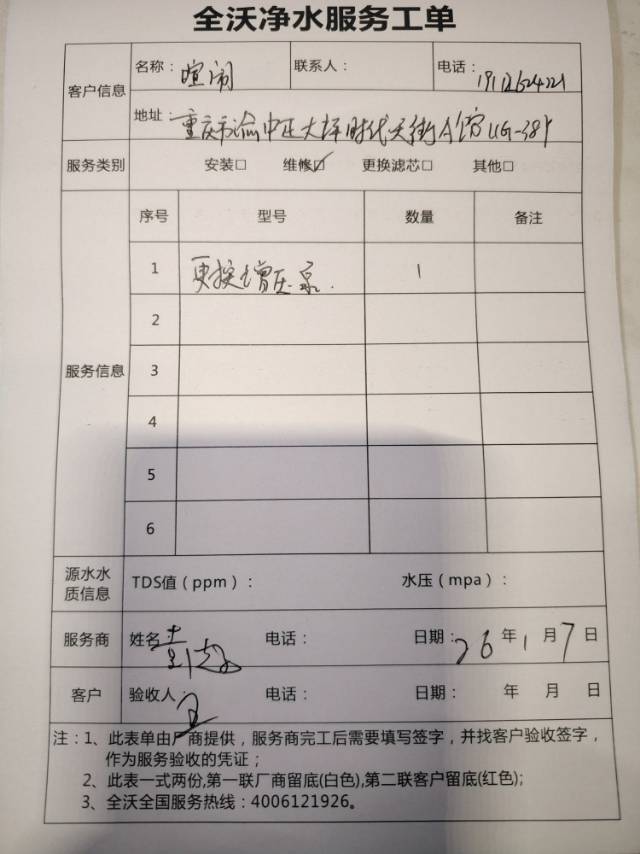 全沃净水服务工单
客户信息
名称：喧闹
联系人：
电话：
地址：重庆市渝中区大坪时代天街A馆UG-38
服务类别
安装□ 维修☑ 更换滤芯□ 其他□
服务信息
序号 型号 数量 备注
1 更换增压泵 1
2
3
4
5
6
源水水质信息
TDS值（ppm）： 水压（mpa）：
服务商 姓名 电话： 日期：26年1月7日
客户 验收人 电话： 日期： 年 月 日
注：1、此表单由厂商提供，服务商完工后需要填写签字，并找客户验收签字，
作为服务验收的凭证；
2、此表一式两份,第一联厂商留底(白色),第二联客户留底(红色);
3、全沃全国服务热线：4006121926。